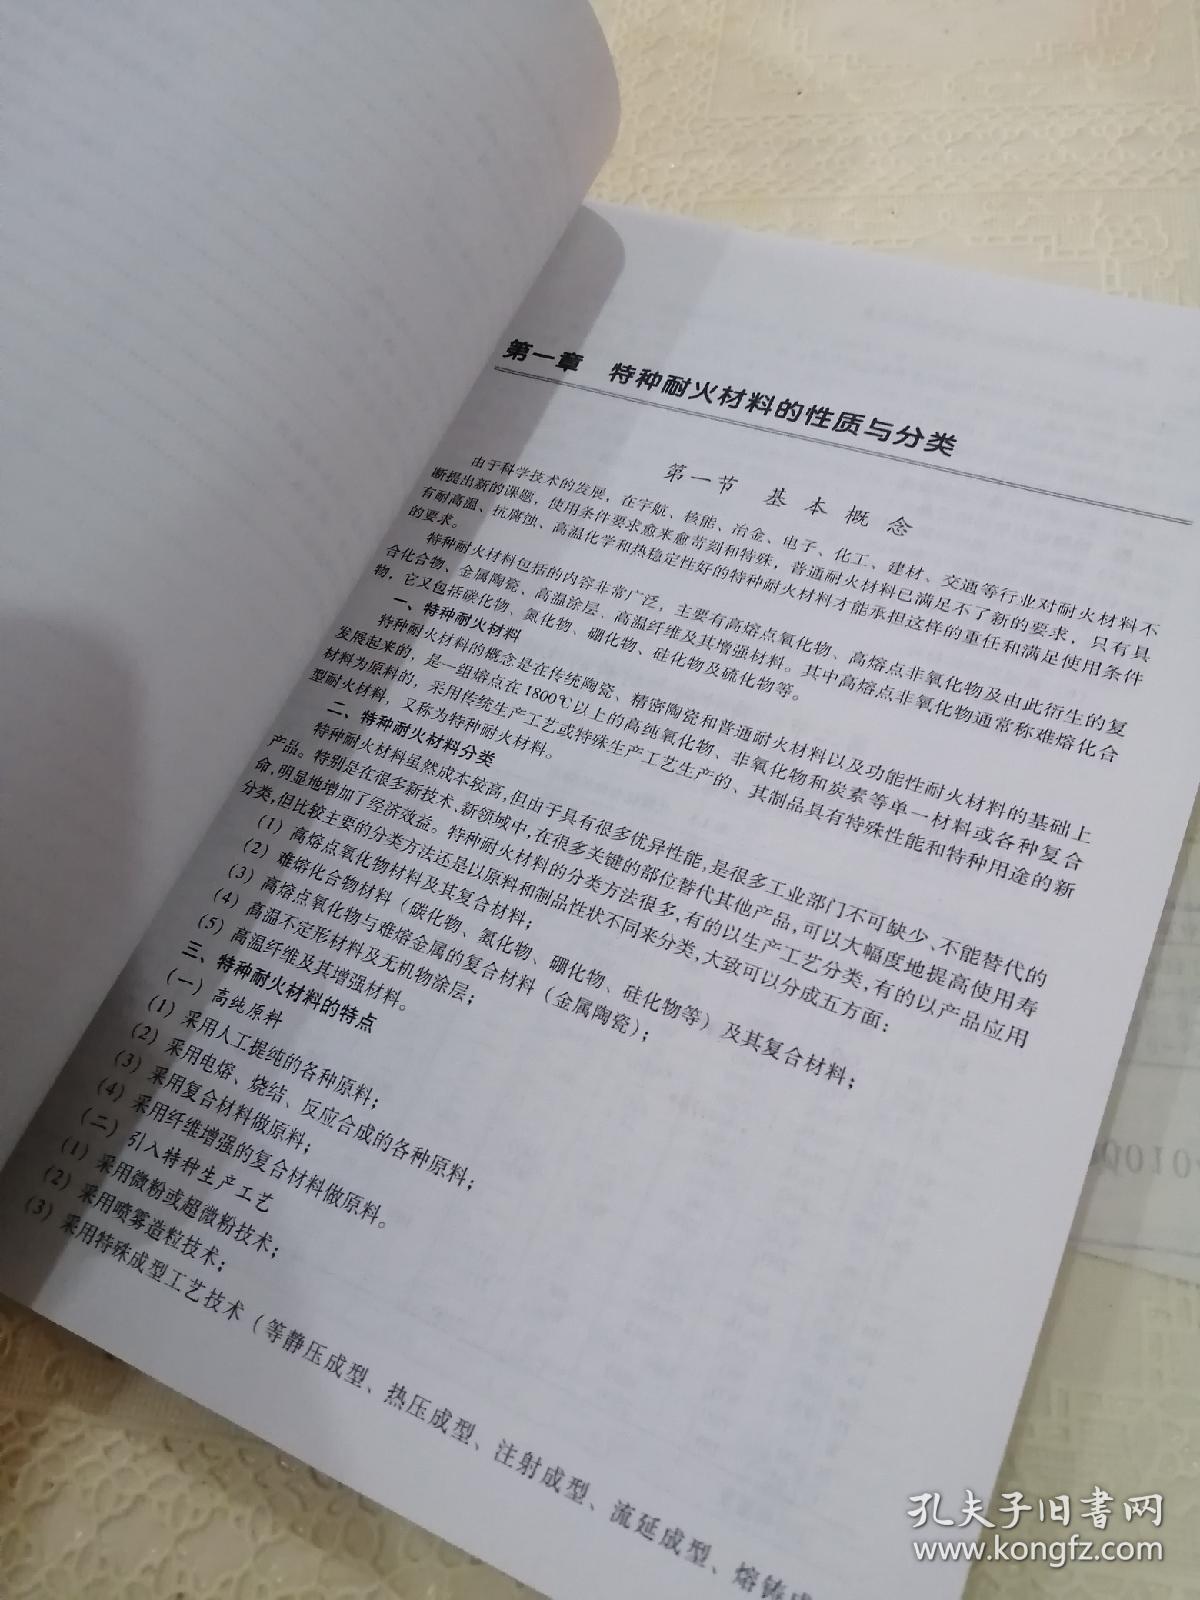 第一章 特种耐火材料的性质与分类
第一节 基本概念
由于科学技术的发展，在宇航、核能、冶金、电子、化工、建材、交通等行业对耐火材料不
断提出新的课题，使用条件要求愈来愈苛刻和特殊，普通耐火材料已满足不了新的要求，只有具
有耐高温、抗腐蚀、高温化学和热稳定性好的特种耐火材料才能承担这样的重任和满足使用条件
的要求。
特种耐火材料包括的内容非常广泛，主要有高熔点氧化物、高熔点非氧化物及由此衍生的复
合化合物、金属陶瓷、高温涂层、高温纤维及其增强材料。其中高熔点非氧化物通常称难熔化合
物，它又包括碳化物、氮化物、硼化物、硅化物及硫化物等。
一、特种耐火材料
特种耐火材料的概念是在传统陶瓷、精密陶瓷和普通耐火材料以及功能性耐火材料的基础上
发展起来的，是一组熔点在1800℃以上的高纯氧化物、非氧化物和炭素等单一材料或各种复合
材料为原料的，采用传统生产工艺或特殊生产工艺生产的、其制品具有特殊性能和特种用途的新
型耐火材料，又称为特种耐火材料。
二、特种耐火材料分类
特种耐火材料虽然成本较高，但由于具有很多优异性能，是很多工业部门不可缺少、不能替代的
产品。特别是在很多新技术、新领域中，在很多关键的部位替代其他产品，可以大幅度地提高使用寿
命，明显地增加了经济效益。特种耐火材料的分类方法很多，有的以生产工艺分类，有的以产品应用
分类，但比较主要的分类方法还是以原料和制品性状不同来分类，大致可以分成五方面：
（1）高熔点氧化物材料及其复合材料；
（2）难熔化合物材料（碳化物、氮化物、硼化物、硅化物等）及其复合材料；
（3）高熔点氧化物与难熔金属的复合材料（金属陶瓷）；
（4）高温不定形材料及无机物涂层；
（5）高温纤维及其增强材料。
三、特种耐火材料的特点
（一）高纯原料
（1）采用人工提纯的各种原料；
（2）采用电熔、烧结、反应合成的各种原料；
（3）采用复合材料做原料；
（4）采用纤维增强的复合材料做原料。
（二）引入特种生产工艺
（1）采用微粉或超微粉技术；
（2）采用喷雾造粒技术；
（3）采用特殊成型工艺技术（等静压成型、热压成型、注射成型、流延成型、熔铸成
孔夫子旧书网
www.kongfz.com